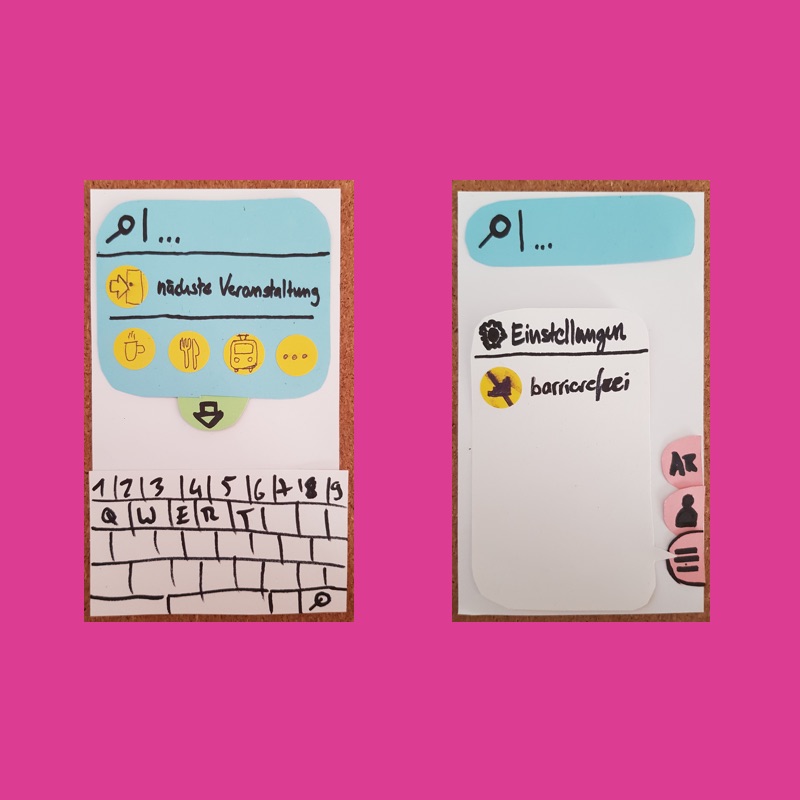 ...
nächste Veranstaltung
...
1 2 3 4 5 6 7 8 9
Q W E R T
...
Einstellungen
barrierefrei
AR